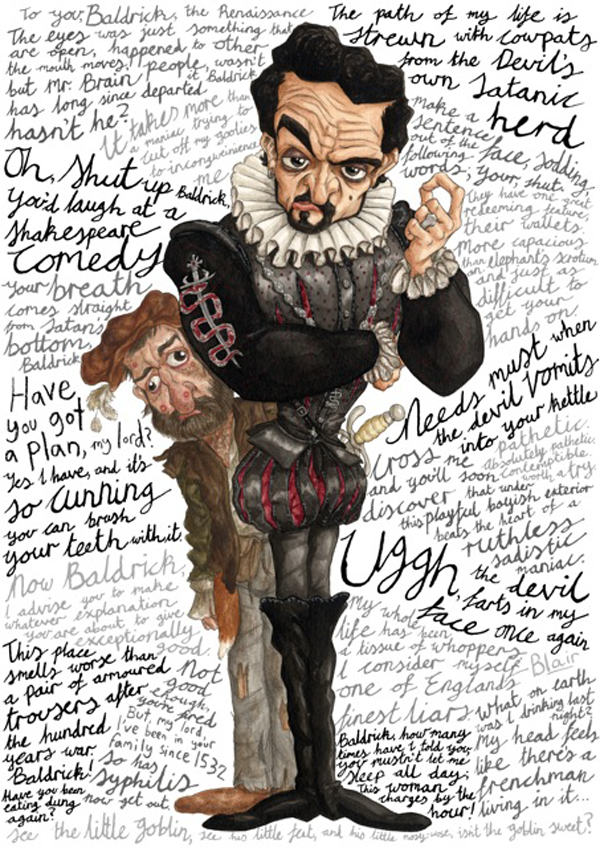 To you, Baldrick, the Renaissance
was just something that
happened to other
people, wasn't
it, Baldrick
The eyes
are open,
the mouth moves,
but Mr. Brain
has long since departed
hasn't he?
It takes more than
a maniac trying to
cut off my goolies
to inconvenience
me
Oh, shut up Baldrick,
you'd laugh at a
Shakespeare
comedy
your breath
comes straight
from Satan's
bottom,
Baldrick
Have
you got
a plan, my lord?
Yes I have, and it's
so cunning
you can brush
your teeth with it.
Now Baldrick,
I advise you to make
whatever explanation
you are about to give
exceptionally
good.
This place
smells worse than
a pair of armoured
trousers after
the hundred
years war.
Baldrick!
Have you been
eating dung
again?
Not
good
enough,
you're fired
But, my lord,
I've been in your
family since 1532
so has
syphilis
now get out.
The path of my life is
strewn with cowpats
from the Devil's
own Satanic
herd
make a
sentence
out of the
following
words; face, sodding,
your, shut.
They have one great
redeeming feature,
their wallets.
More capacious
than
an elephant's scrotum
and just as
difficult to
get your
hands on!
Needs must when
the devil vomits
into your kettle
cross me
and you'll soon
discover that under
this playful boyish exterior
beats the heart of a
ruthless
sadistic
maniac.
pathetic.
absolutely pathetic.
contemptible.
worth a try.
Uggh,
the devil
farts in my
face once again
My whole
life has been
a tissue of whoppers
I consider myself
one of England's
finest liars.
Blair
Baldrick, how many
times have I told you
you mustn't let me
sleep all day;
This woman
charges by the
hour!
what on earth
was I drinking last
night?
My head feels
like there's a
frenchman
living in it...
see the little goblin, see his little feet, and his little nosy-wose, isn't the goblin sweet?